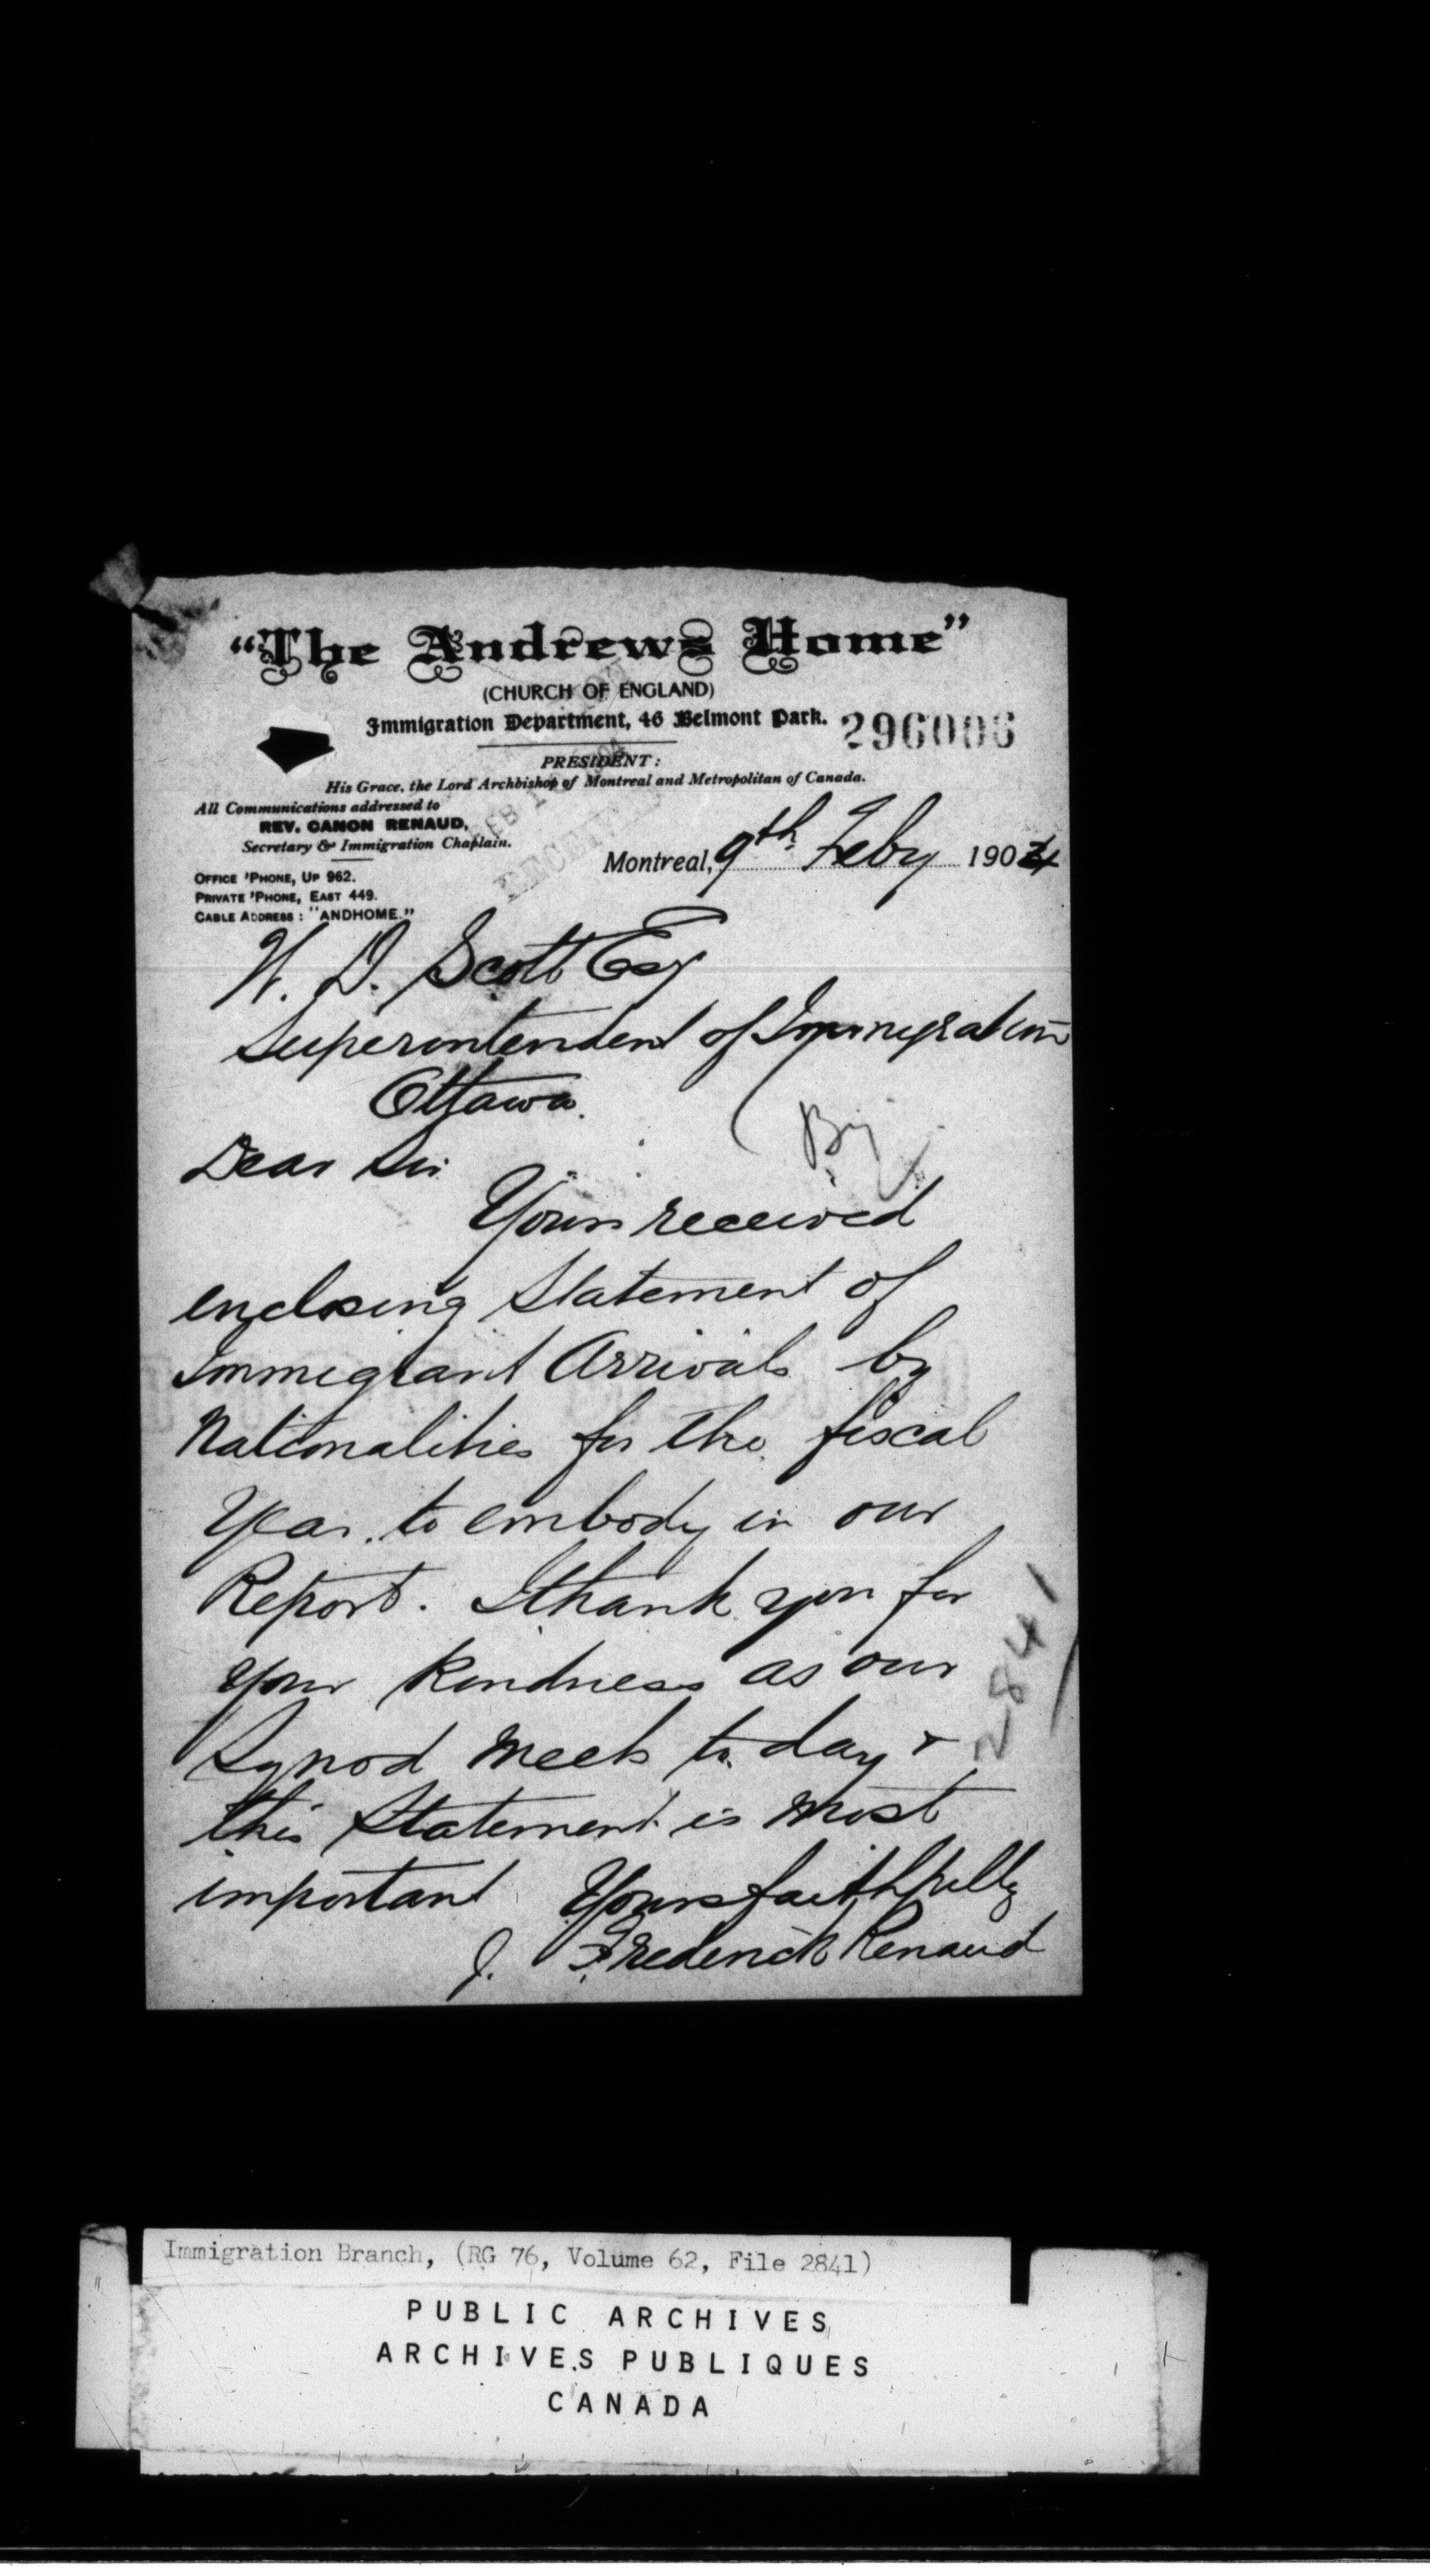 “The Andrews Home”
(CHURCH OF ENGLAND)
Immigration Department, 46 Belmont Park.
296006
PRESIDENT:
His Grace, the Lord Archbishop of Montreal and Metropolitan of Canada.
All Communications addressed to
REV. CANON RENAUD,
Secretary & Immigration Chaplain.
OFFICE 'PHONE, UP 962.
PRIVATE 'PHONE, EAST 449.
CABLE ADDRESS: "ANDHOME."
RECEIVED
FEB
Montreal, 9th Feby 1904
W. D. Scott Esq
Superintendent of Immigration
Ottawa.
Dear Sir
Yours received
enclosing Statement of
Immigrant Arrivals by
Nationalities for the fiscal
Year to embody in our
Report. I thank you for
your kindness as our
Synod meets to day &
this Statement is most
important Yours faithfully
J. Frederick Renaud
2841
Immigration Branch, (RG 76, Volume 62, File 2841)
PUBLIC ARCHIVES
ARCHIVES PUBLIQUES
CANADA